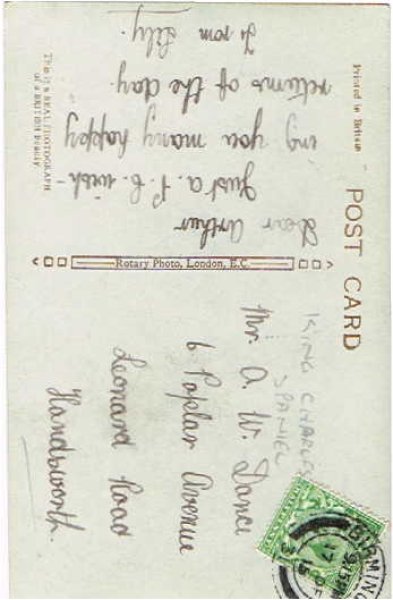 POST CARD
Printed in Britain
THIS IS A REAL PHOTOGRAPH
OF A BRITISH BEAUTY
Rotary Photo, London, E.C.
Dear Arthur
Just a P.C. wish-
ing you many happy
returns of the day.
From Lily.
KING CHARLES
SPANIEL
Mr. A. W. Dance
6 Poplar Avenue
Leonard Road
Handsworth
BIRMING
9.15PM
17